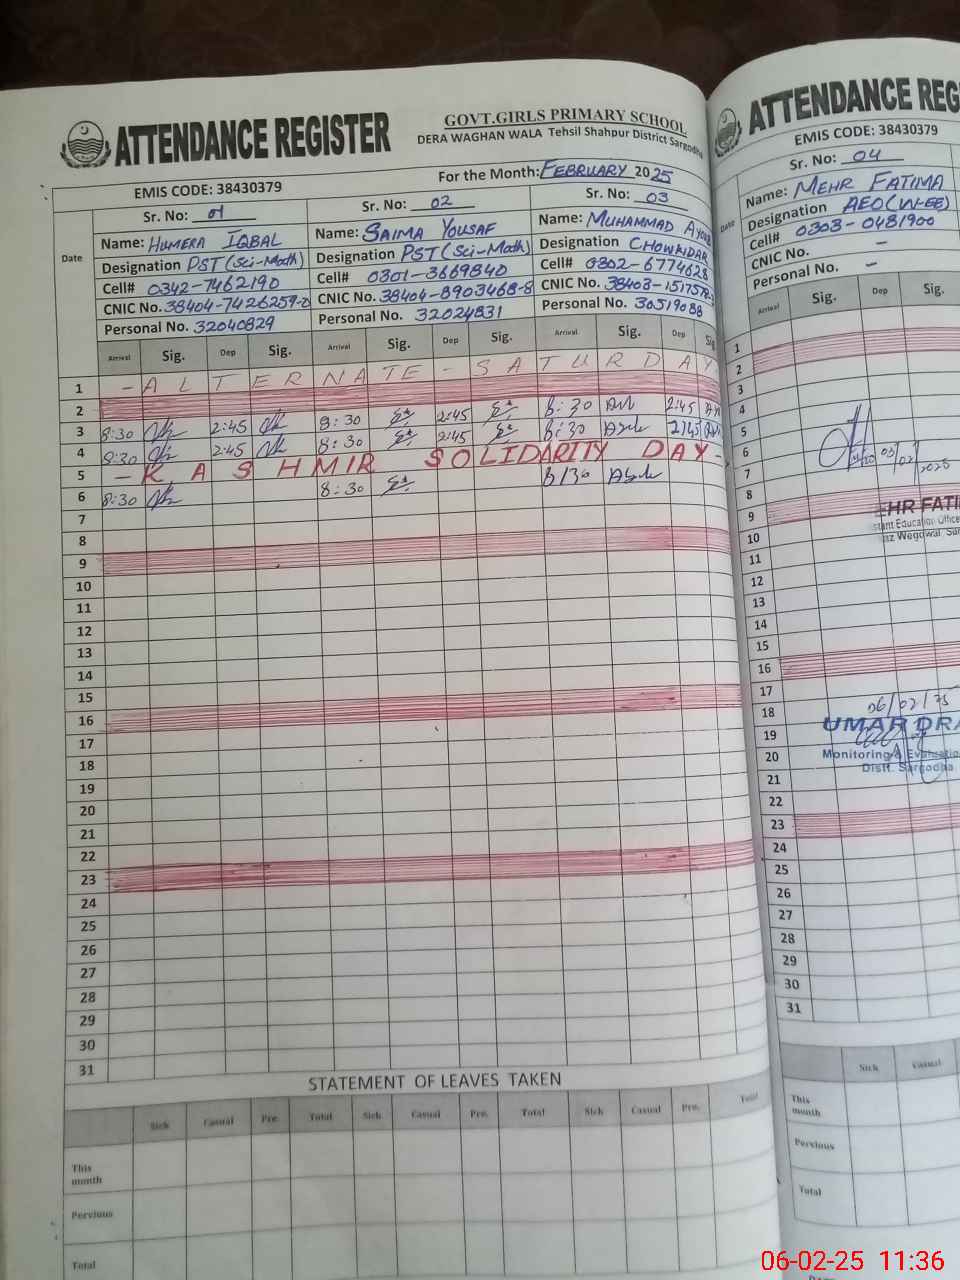 ATTENDANCE REGISTER
GOVT.GIRLS PRIMARY SCHOOL
DERA WAGHAN WALA Tehsil Shahpur District Sargodha
EMIS CODE: 38430379
For the Month: FEBRUARY 2025
Date
Sr. No: 01 Sr. No: 02 Sr. No: 03
Name: HUMERA IQBAL Name: SAIMA YOUSAF Name: MUHAMMAD
Designation PST (Sci-Math) Designation PST (Sci-Math) Designation CHOWKIDAR
Cell# 0342-7462190 Cell# 0301-3669840 Cell# 0302-6774628
CNIC No. 38404-7426259-0 CNIC No. 38404-8903468-8 CNIC No. 38403-1517578-
Personal No. 32040829 Personal No. 32024831 Personal No. 30519088
Arrival Sig. Dep Sig. Arrival Sig. Dep Sig. Arrival Sig. Dep Sig
1 - ALTERNATE - SATURDAY
2
3 8:30 2:45 8:30 2:45 8:30 2:45
4 8:30 2:45 8:30 2:45 8:30 2:45
5 - KASHMIR SOLIDARITY DAY -
6 8:30 8:30 8:30
7
8
9
10
11
12
13
14
15
16
17
18
19
20
21
22
23
24
25
26
27
28
29
30
31
STATEMENT OF LEAVES TAKEN
Sick Casual Pre. Total Sick Casual Pre. Total Sick Casual Pre. Total
This month
Pervious
Total
ATTENDANCE REG
EMIS CODE: 38430379
Sr. No: 04
Date
Name: MEHR FATIMA
Designation AEO (W-EE)
Cell# 0303-0481900
CNIC No. -
Personal No. -
Arrival Sig. Dep Sig.
1
2
3
4
5
6
7 03/02/2025
8
9 EHR FATI
stant Education Office
10
11
12
13
14
15
16
17
18 06/02/25
19 UMAR DRA
20 Monitoring & Evaluatio
Distt. Sargodha
21
22
23
24
25
26
27
28
29
30
31
Sick Casual
This month
Pervious
Total
06-02-25 11:36